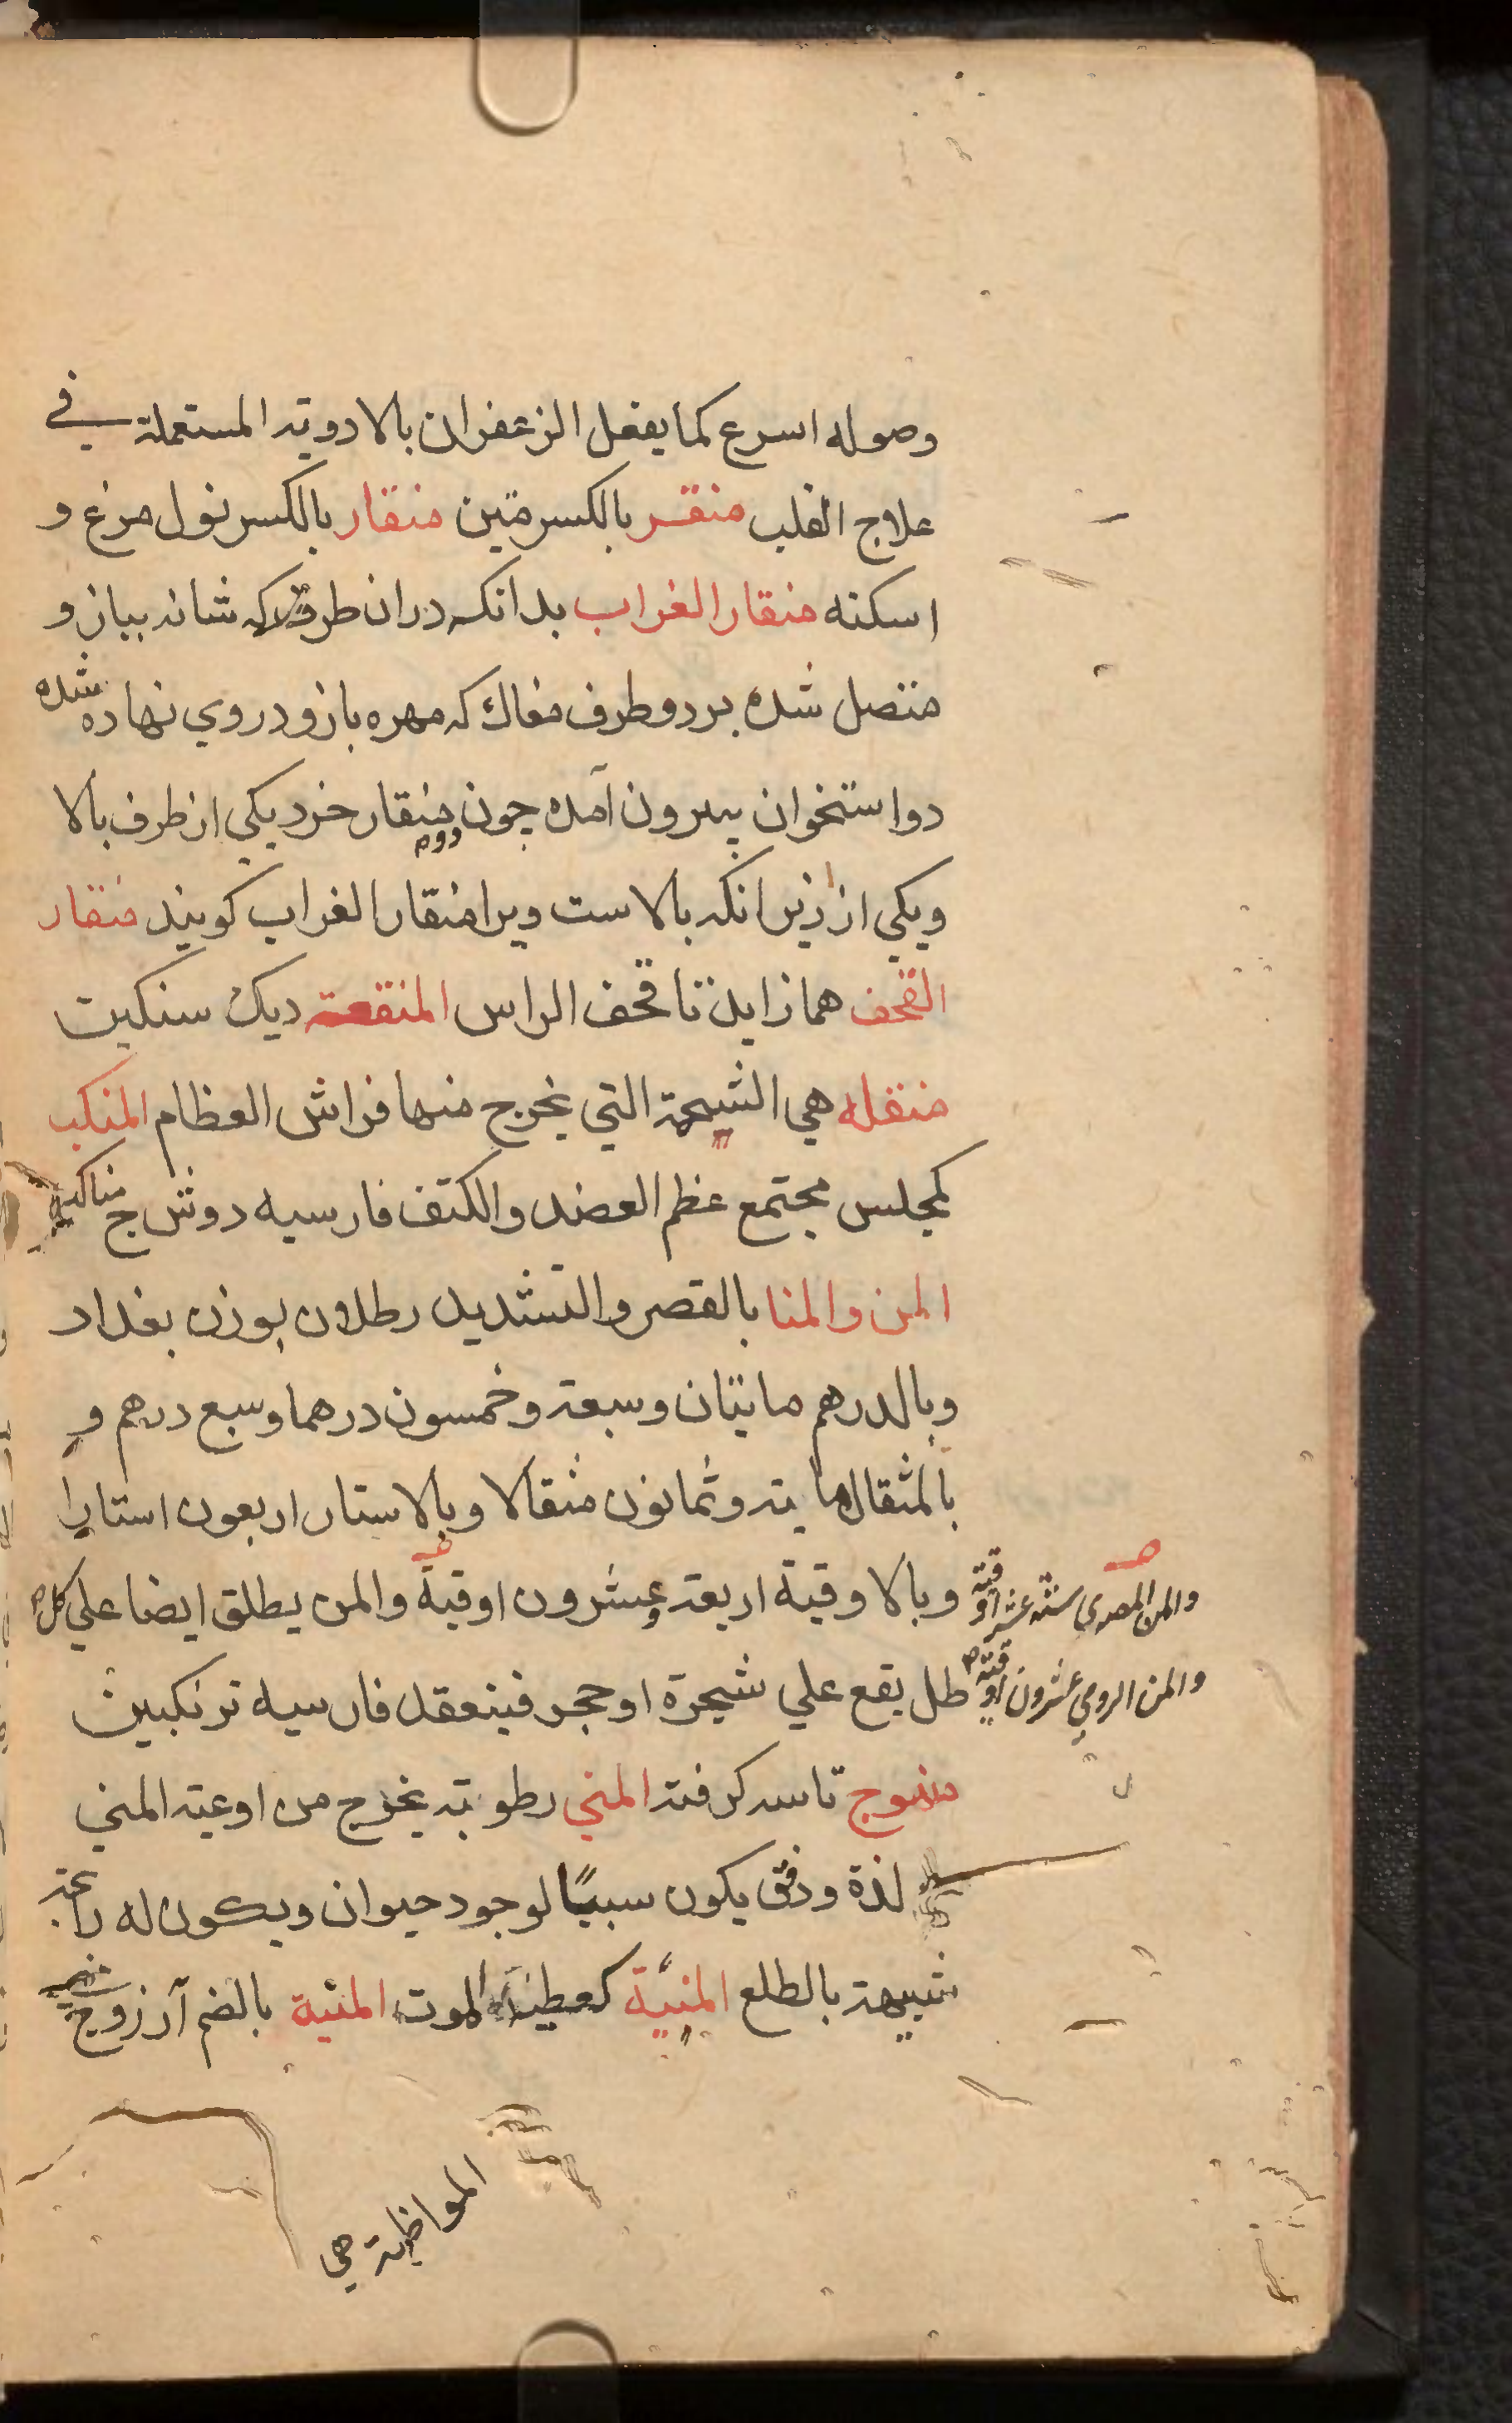 وصوله اسرع كما يفعل الزعفران بالادوية المستعملة في
علاج القلب منقر بالكسر متين منقار بالكسر نول مرغ و
اسكنه منقار الغراب بدانكه در ان طرف كه شانه ببازو
متصل شده بر دو طرف مغاك كه مهره بازو در وي نهاده شده
دو استخوان بيرون آمده چون منقار خرد يكي از طرف بالا
ويكي از زير انكه بالاست ويرا منقار الغراب كويند منقار
القحف همازايدتا قحف الراس المنقعة ديك سنكين
منقله هي الشجة التي يخرج منها فراش العظام المنكب
كمجلس مجتمع عظم العضد والكتف فارسيه دوش ج مناكب
المن والمنا بالقصر والتشديد رطلان بوزن بغداد
وبالدرهم مايتان وسبعة وخمسون درهما وسبع درهم و
بالمثقال ماية وثمانون مثقالا وبالاستار اربعون استارا
وبالاوقية اربعة وعشرون اوقية والمن يطلق ايضا علي كل
والمن المصري ستة عشر اوقية
طل يقع علي شجرة او حجر فينعقد فارسيه ترنكبين
والمن الرومي عشرون اوقية
منوج تاسه كرفته المني رطوبة يخرج من اوعية المني
لذة ودفق يكون سببًا لوجود حيوان ويكون له رائحة
شبيهة بالطلع المنيّة كعطية الموت المنية بالضم آرزو ج
المواظبة هي